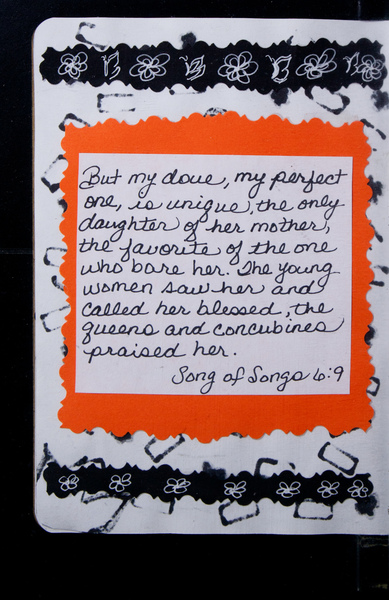 But my dove, my perfect
one, is unique, the only
daughter of her mother,
the favorite of the one
who bore her. The young
women saw her and
called her blessed, the
queens and concubines
praised her.
Song of Songs 6:9